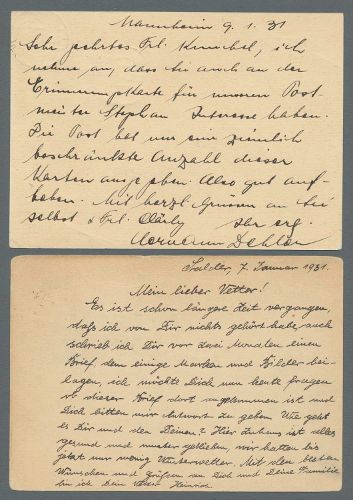 Mannheim 9. 1. 31
Sehr geehrtes Frl. ich
nehme an, dass Sie auch an der
Erinnerungskarte für unseren Post-
meister Stephan Interesse haben.
Die Post hat nur eine ziemlich
beschränkte Anzahl dieser
Karten ausgegeben. Also gut auf-
heben. Mit herzl. Grüssen an Sie
selbst & Frl. Ihr erg.
Hermann
Salder, 7. Januar 1931.
Mein lieber Vetter!
Es ist schon längere Zeit vergangen,
daß ich von Dir nichts gehört habe, auch
schrieb ich Dir vor zwei Monaten einen
Brief, dem einige Marken und Bilder bei-
lagen, ich möchte Dich nun heute fragen
ob dieser Brief dort angekommen ist und
Dich bitten mir Antwort zu geben. Wie geht
es Dir und den Deinen? Hier zuhaus ist alles
gesund und munter geblieben, wir hatten bis
jetzt nur wenig Winterwetter. Mit den besten
Wünschen und Grüßen an Dich und Deine Familie
bin ich Dein Vetter Heinrich.